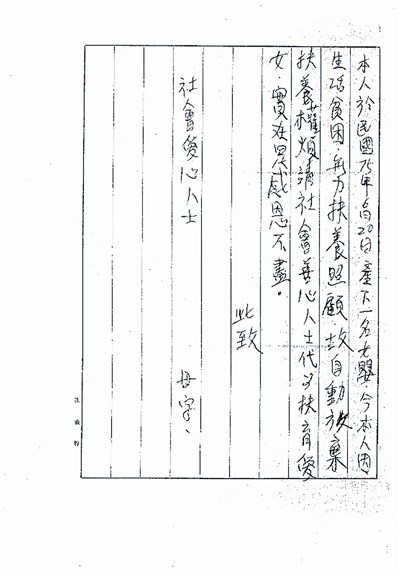 本人於民國75年6月20日產下一名女嬰，今本人因
生活貧困，無力扶養照顧，故自動放棄
扶養權煩請社會善心人士代為扶育愛
女，實在是感恩不盡。
此致
社會愛心人士
母字、